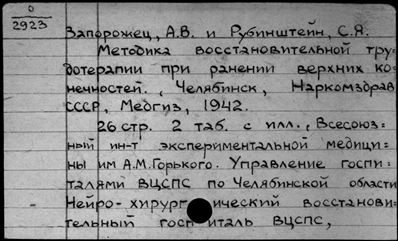 0
2923
Запорожец, А.В. и Рубинштейн, С.Я.
Методика восстановительной тру-
дотерапии при ранении верхних ко-
нечностей., Челябинск, Наркомздрав
СССР, Медгиз, 1942.
26 стр. 2 таб. с илл., Всесоюз-
ный ин-т экспериментальной медици-
ны им А.М.Горького. Управление госпи-
талями ВЦСПС по Челябинской области
Нейро-хирургический восстанови-
тельный госпиталь ВЦСПС,